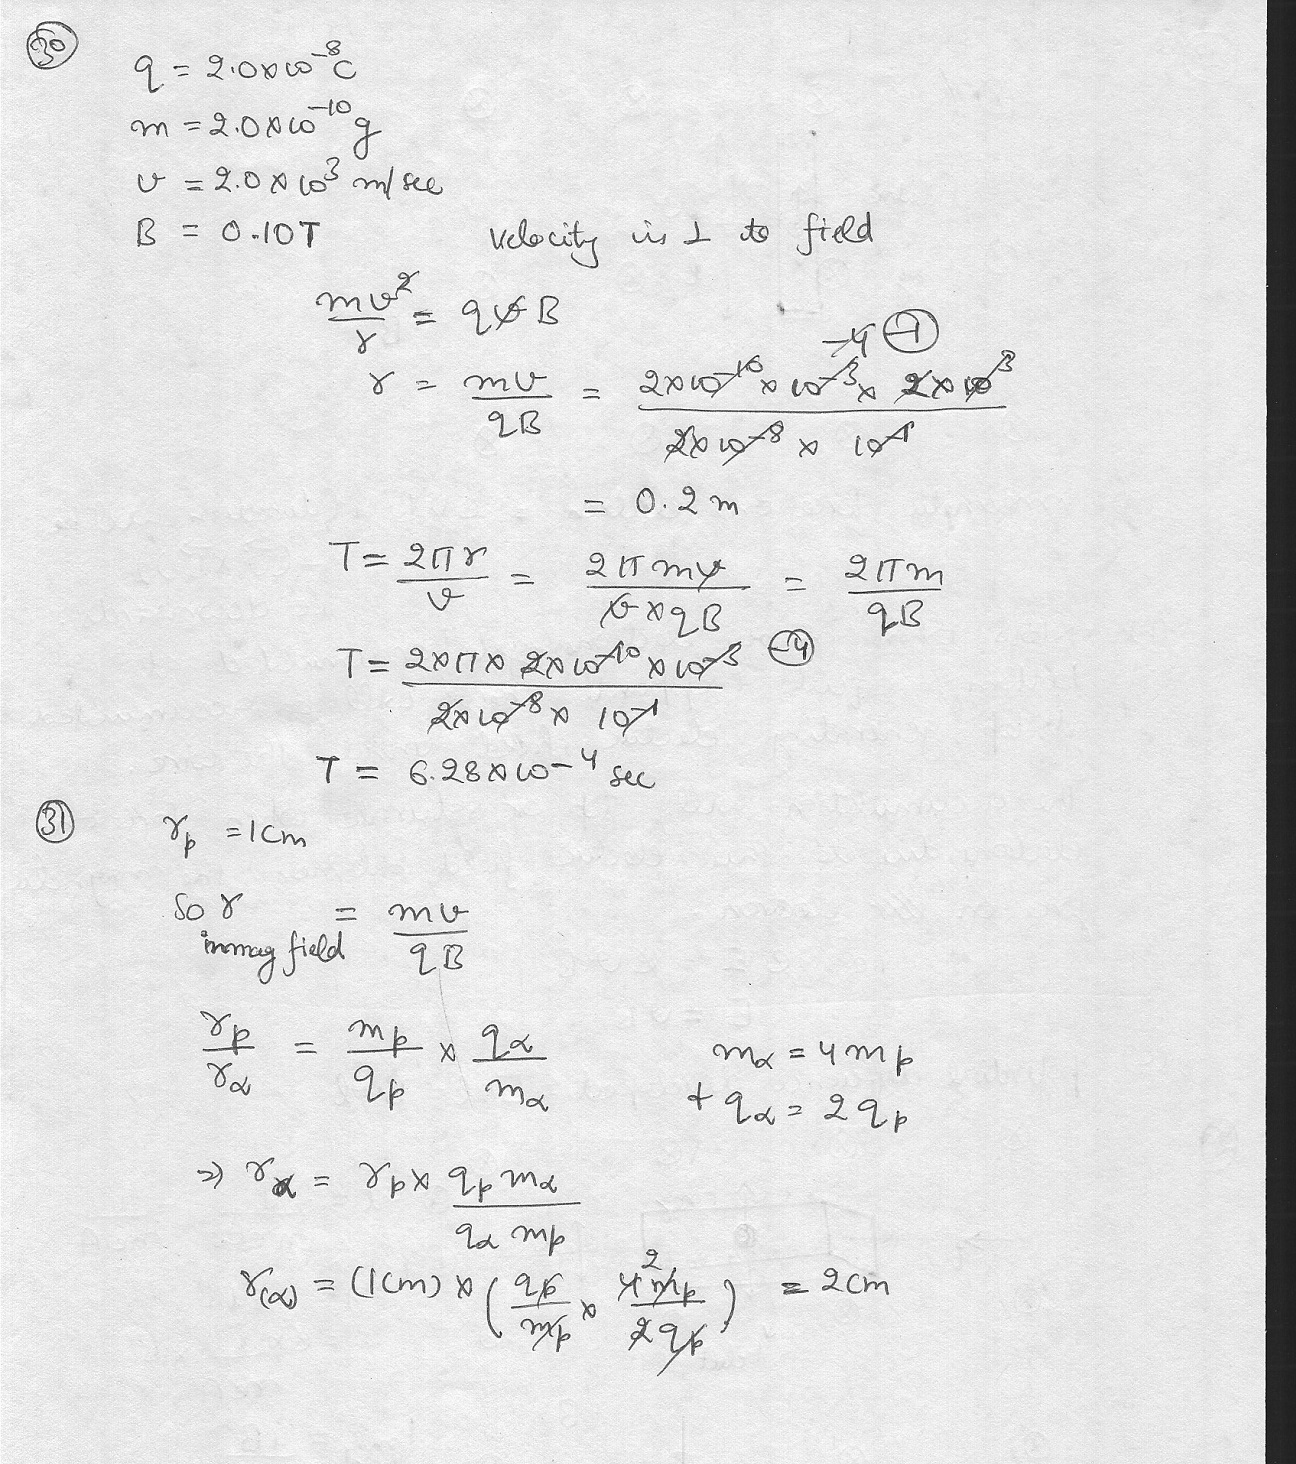 30
q = 2.0×10⁻⁸C
m = 2.0×10⁻¹⁰g
v = 2.0×10³ m/sec
B = 0.10T velocity is ⊥ to field
mv²/r = qvB
-4 -1
r = mv/qB = 2×10⁻¹⁰×10⁻³×2×10³ / 2×10⁻⁸×10⁻¹
= 0.2m
T = 2πr/v = 2πmv/v×qB = 2πm/qB
T = 2×π×2×10⁻¹⁰×10⁻³ / 2×10⁻⁸×10⁻¹ -4
T = 6.28×10⁻⁴ sec
31 rp = 1cm
so r in mag field = mv/qB
rp/rα = mp/qp × qα/mα mα = 4mp
+ qα = 2qp
⇒ rα = rp × qp mα / qα mp
r(α) = (1cm) × (qp/mp × 4mp/2qp) = 2cm
2